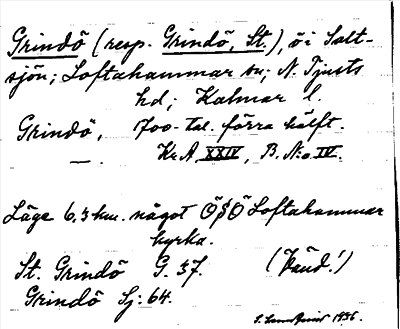 Grindö (resp. Grindö, St.), ö i Salt-
sjön; Loftahammar sn; N. Tjusts
hd; Kalmar l.
Grindö, 1700-tal. förra hälft.
— Kr A XXIV, B. N:o IV.
Läge 6,3 km. något ÖSÖ Loftahammar
kyrka.
St. Grindö G. 37. (Vänd!)
Grindö Sj: 64.
1936.